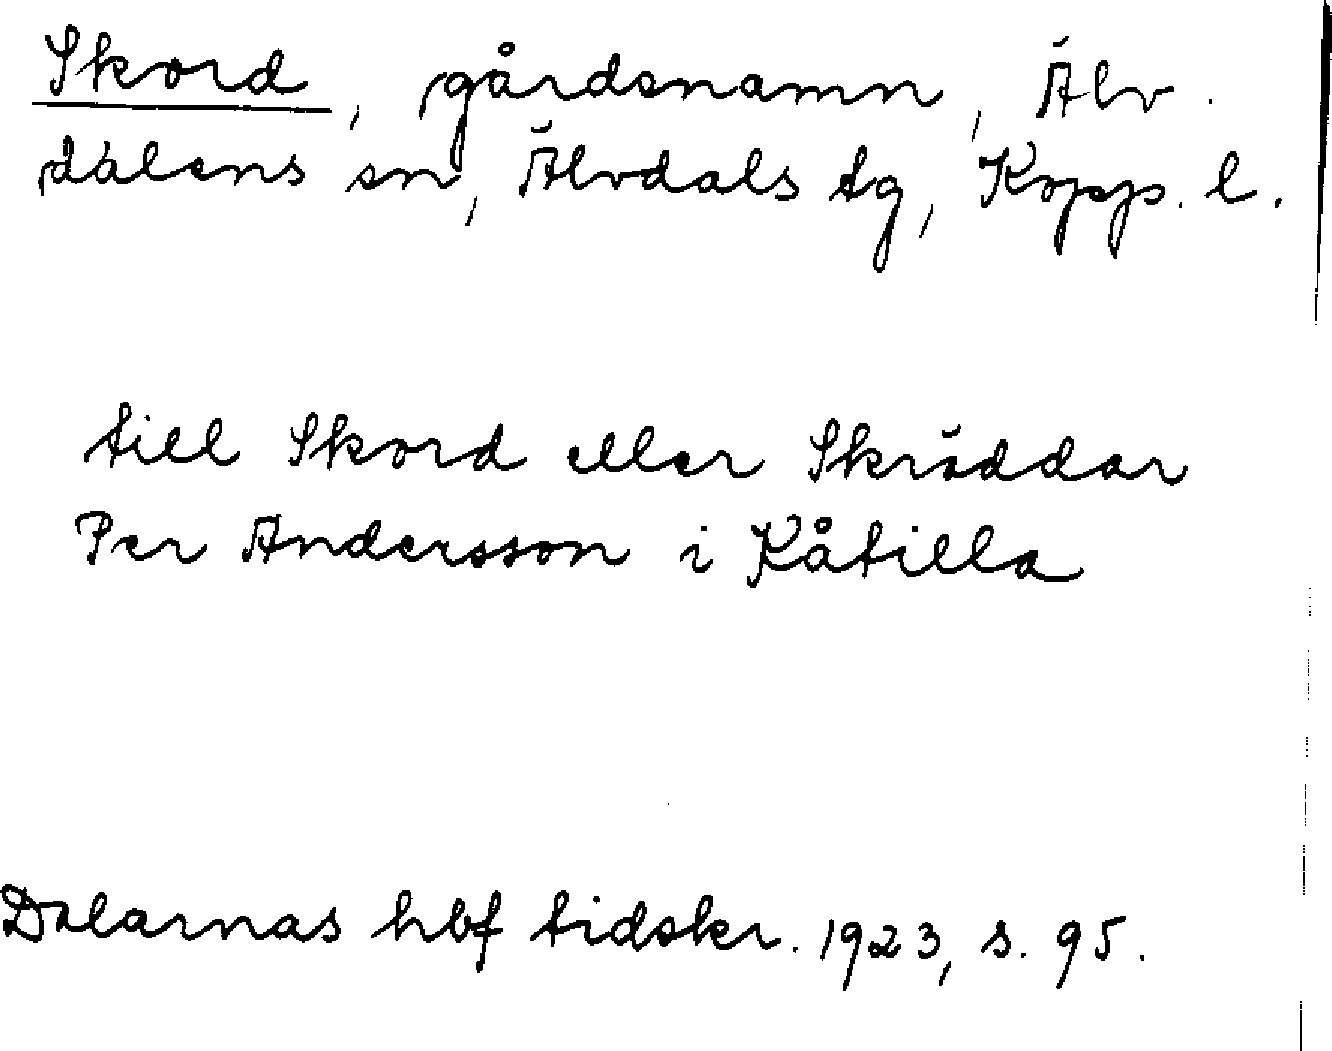 Skord, gårdsnamn, Älv.
dalens sn, Älvdals tg, Kopp. l.
till Skord eller Skräddar
Per Andersson i Kåtilla
Dalarnas hbf tidskr. 1923, s. 95.